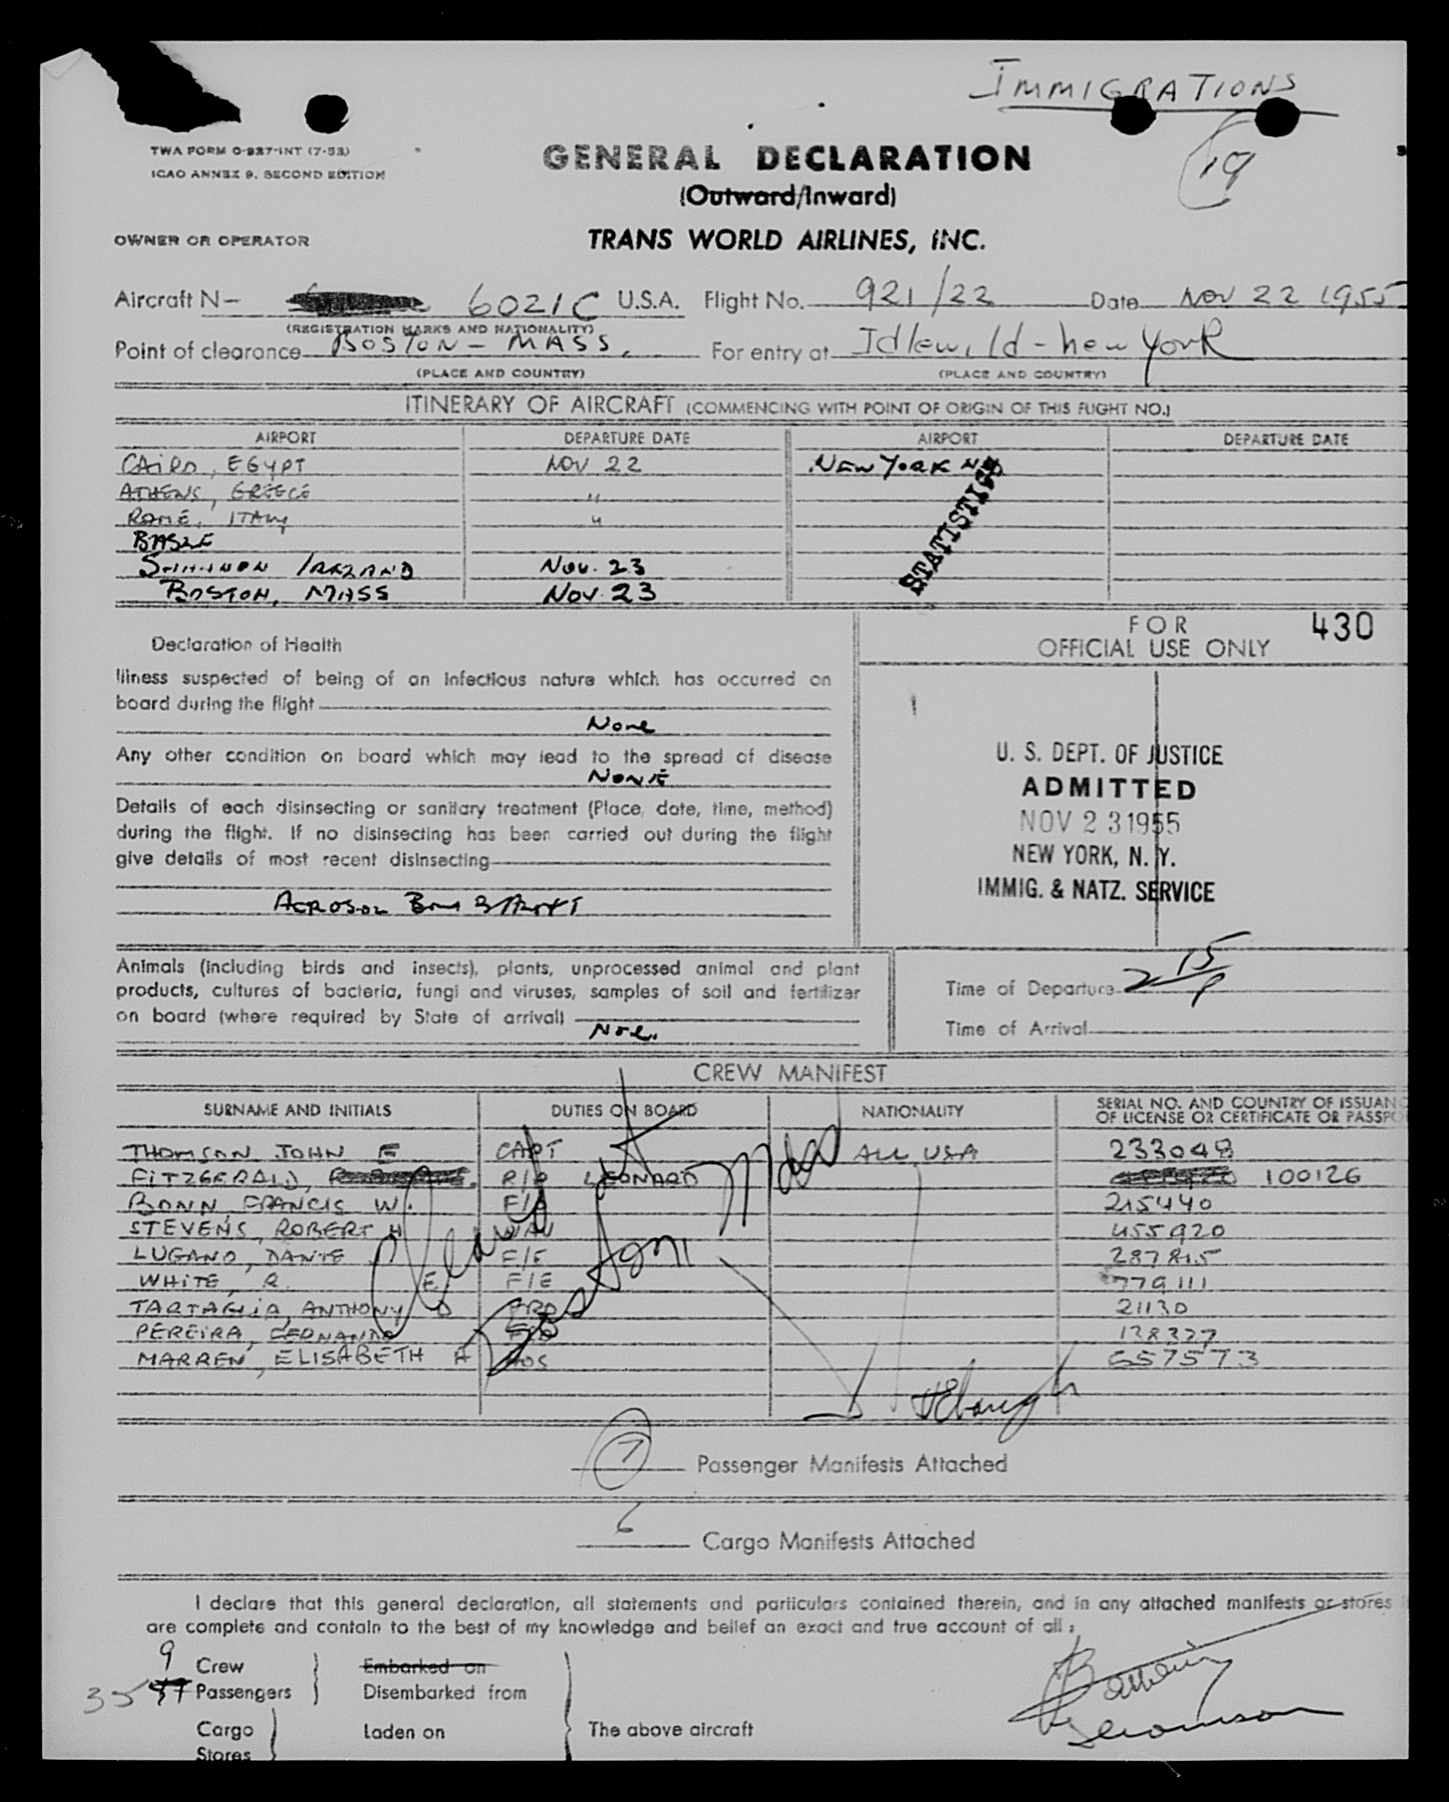 IMMIGRATIONS
19
TWA FORM O-927-INT (7-53)
ICAO ANNEX 9, SECOND EDITION
GENERAL DECLARATION
(Outward/Inward)
OWNER OR OPERATOR
TRANS WORLD AIRLINES, INC.
Aircraft N- 6021C U.S.A. Flight No. 921/22 Date Nov 22 1955
(REGISTRATION MARKS AND NATIONALITY)
Point of clearance BOSTON - MASS. For entry at Idlewild - New York
(PLACE AND COUNTRY) (PLACE AND COUNTRY)
ITINERARY OF AIRCRAFT (COMMENCING WITH POINT OF ORIGIN OF THIS FLIGHT NO.)
AIRPORT DEPARTURE DATE AIRPORT DEPARTURE DATE
CAIRO, EGYPT NOV 22 NEW YORK
ATHENS, GREECE "
ROME, ITALY "
BASLE
SHANNON IRELAND NOV. 23
BOSTON, MASS NOV. 23
STATISTICS
FOR 430
OFFICIAL USE ONLY
Declaration of Health
Illness suspected of being of an infectious nature which has occurred on
board during the flight
None
Any other condition on board which may lead to the spread of disease
NONE
Details of each disinsecting or sanitary treatment (Place, date, time, method)
during the flight. If no disinsecting has been carried out during the flight
give details of most recent disinsecting
AEROSOL
U. S. DEPT. OF JUSTICE
ADMITTED
NOV 23 1955
NEW YORK, N. Y.
IMMIG. & NATZ. SERVICE
Animals (including birds and insects), plants, unprocessed animal and plant
products, cultures of bacteria, fungi and viruses, samples of soil and fertilizer
on board (where required by State of arrival)
Time of Departure 2 15 P
Time of Arrival
CREW MANIFEST
SURNAME AND INITIALS DUTIES ON BOARD NATIONALITY SERIAL NO. AND COUNTRY OF ISSUANC
OF LICENSE OR CERTIFICATE OR PASSPO
THOMSON JOHN E CAPT ALL USA 233048
FITZGERALD, LEONARD 100126
BONN, FRANCIS W. F/O 215440
STEVENS, ROBERT H NAV 455920
LUGANO, DANTE F/E 287815
WHITE, R. E F/E 779111
TARTAGLIA, ANTHONY D PRO 21130
PEREIRA, FERNANDO 138327
MARREN, ELISABETH A HOS 657573
7 Passenger Manifests Attached
6 Cargo Manifests Attached
I declare that this general declaration, all statements and particulars contained therein, and in any attached manifests or stores
are complete and contain to the best of my knowledge and belief an exact and true account of all:
9 Crew Embarked on
35 Passengers Disembarked from
Cargo Laden on The above aircraft
Stores